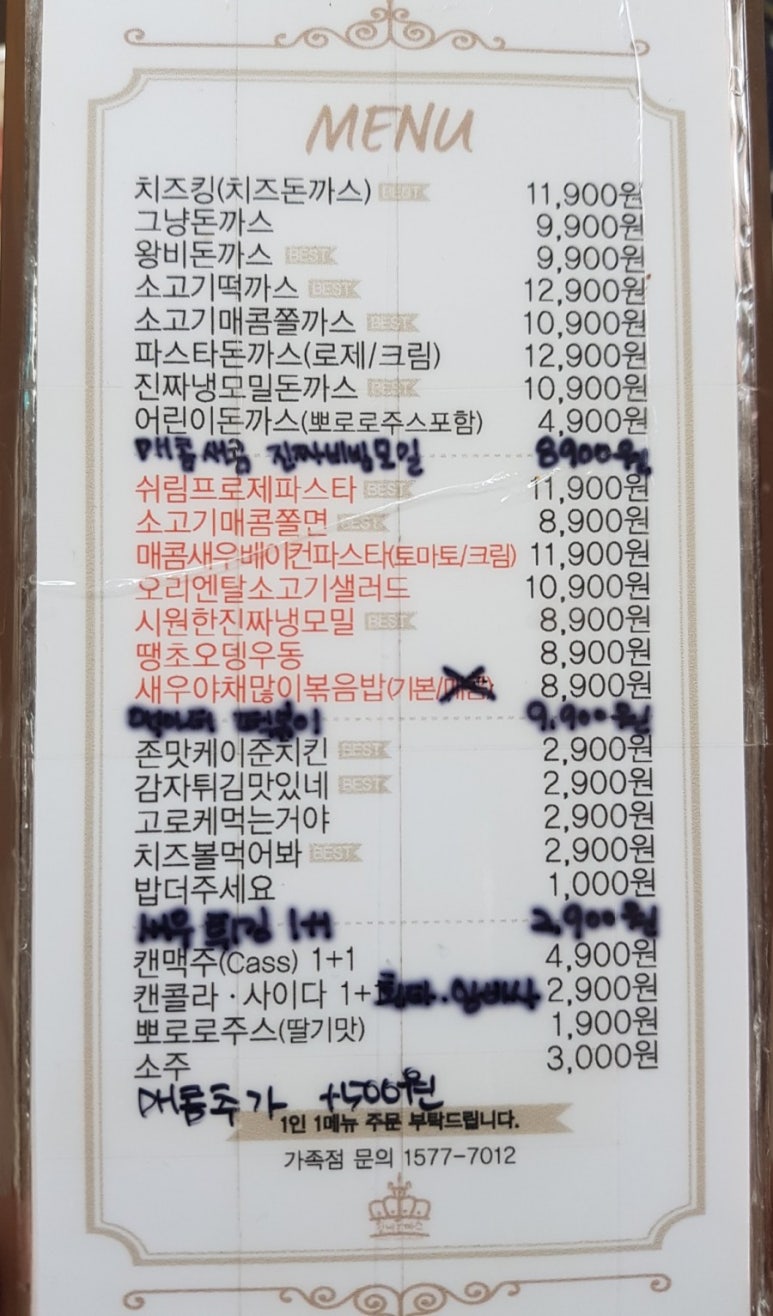 MENU
치즈킹(치즈돈까스) BEST 11,900원
그냥돈까스 9,900원
왕비돈까스 BEST 9,900원
소고기떡까스 BEST 12,900원
소고기매콤쫄까스 BEST 10,900원
파스타돈까스(로제/크림) 12,900원
진짜냉모밀돈까스 BEST 10,900원
어린이돈까스(뽀로로주스포함) 4,900원
매콤새콤 진짜비빔모밀 8900원
쉬림프로제파스타 BEST 11,900원
소고기매콤쫄면 BEST 8,900원
매콤새우베이컨파스타(토마토/크림) 11,900원
오리엔탈소고기샐러드 10,900원
시원한진짜냉모밀 BEST 8,900원
땡초오뎅우동 8,900원
새우야채많이볶음밥(기본/매콤) 8,900원
떡볶이 9,900원
존맛케이준치킨 BEST 2,900원
감자튀김맛있네 BEST 2,900원
고로케먹는거야 2,900원
치즈볼먹어봐 BEST 2,900원
밥더주세요 1,000원
새우튀김 2,900원
캔맥주(Cass) 1+1 4,900원
캔콜라·사이다 1+ 2,900원
뽀로로주스(딸기맛) 1,900원
소주 3,000원
매콤추가 +500원
1인 1메뉴 주문 부탁드립니다.
가족점 문의 1577-7012